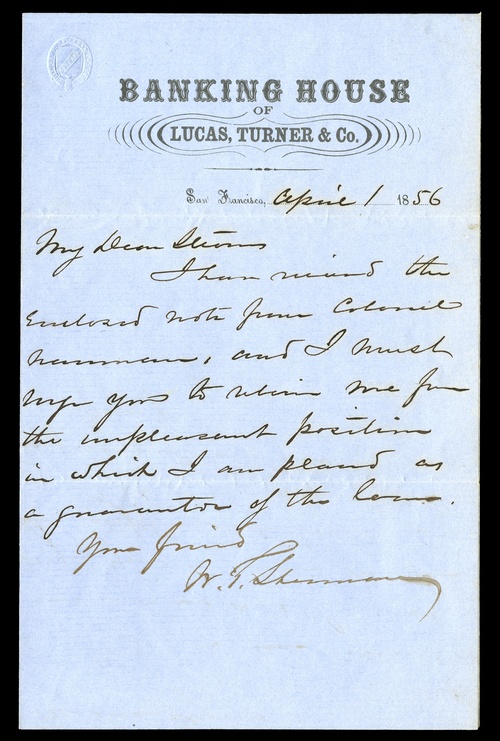 BANKING HOUSE
OF
LUCAS, TURNER & Co.
San Francisco, April 1 1856
My Dear Stevens
I have received the
enclosed note from Colonel
and I must
urge you to relieve me from
the unpleasant position
in which I am placed as
a guarantor of the loan.
Your friend
W. T. Sherman